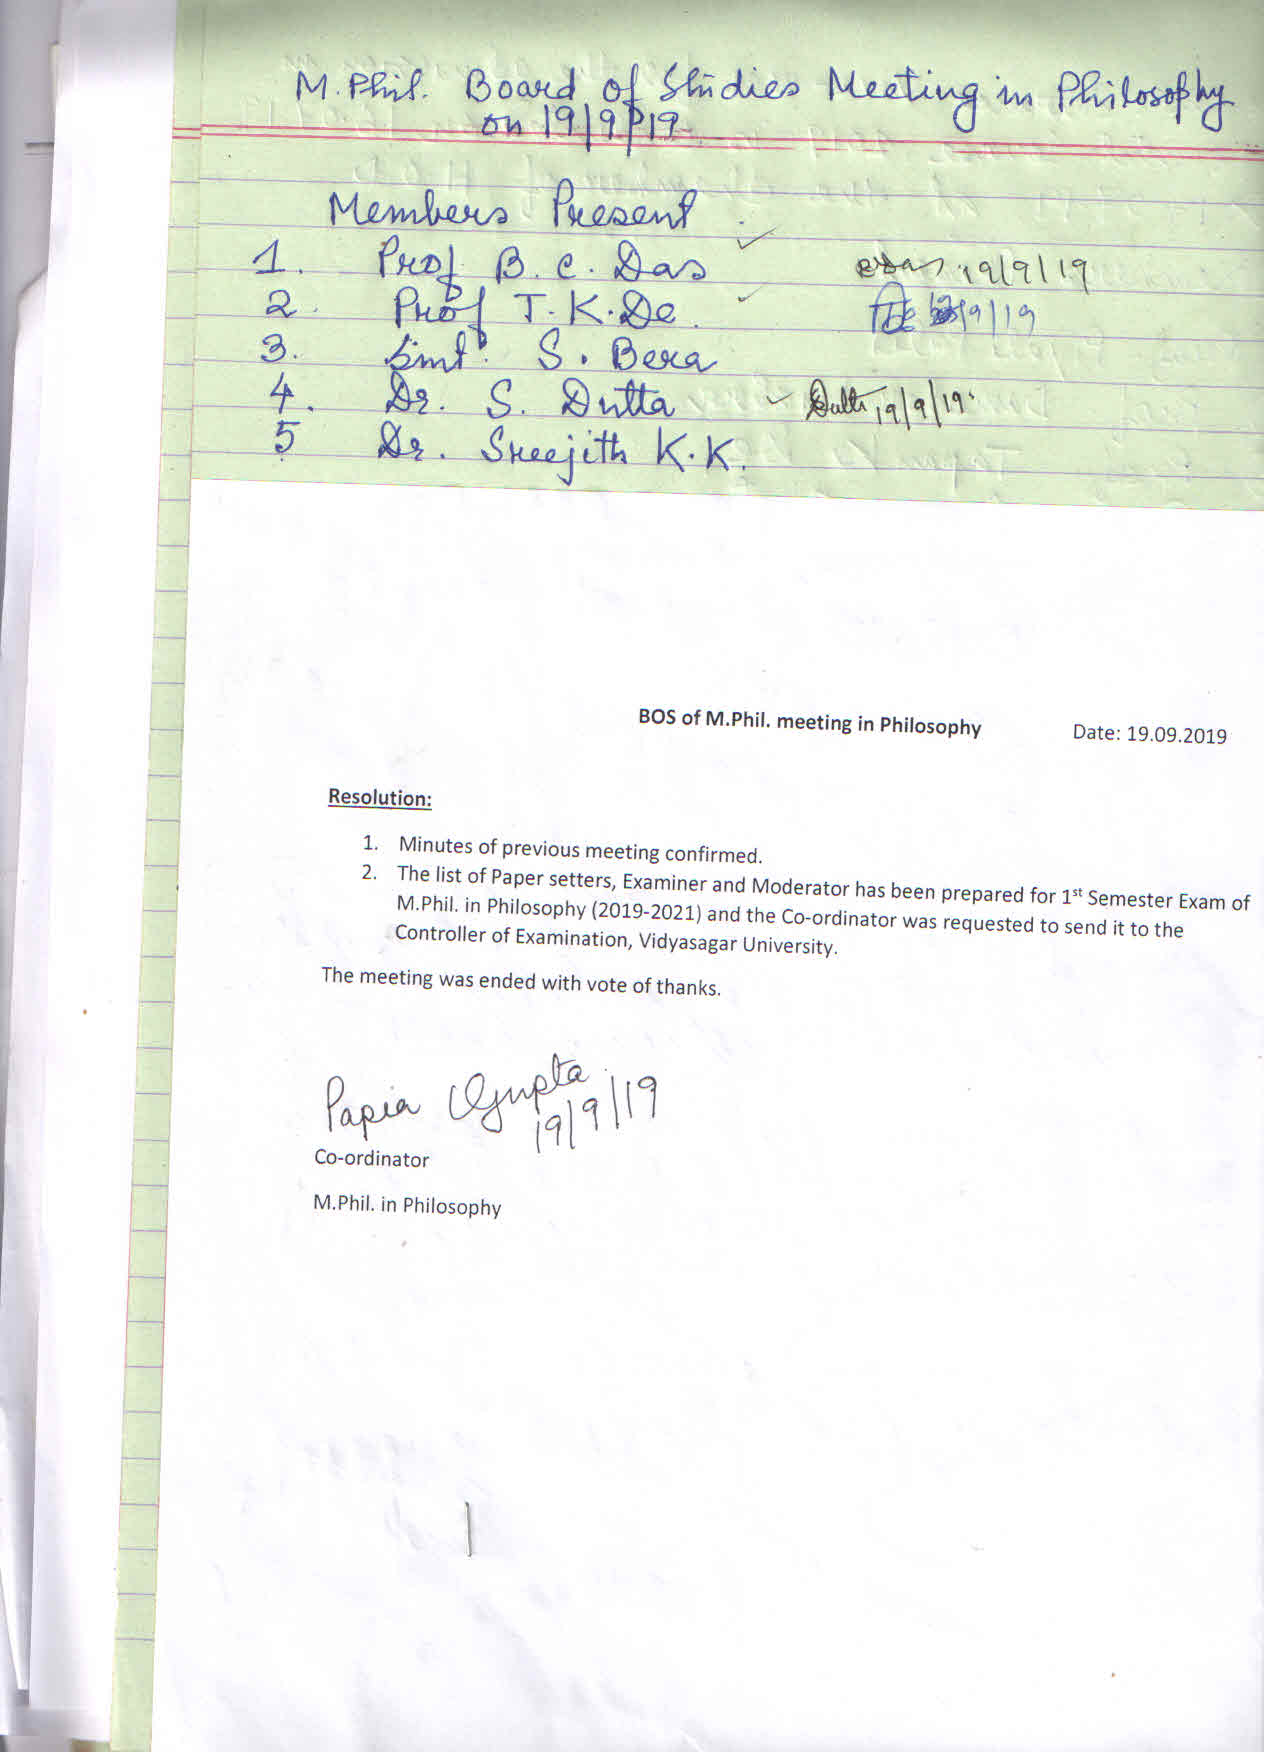 M.Phil. Board of Studies Meeting in Philosophy
on 19/9/19
Members Present
1. Prof B. C. Das 19/9/19
2. Prof T. K. De /9/19
3. Smt. S. Bera
4. Dr. S. Dutta Dutta 19/9/19
5 Dr. Sreejith K.K.
BOS of M.Phil. meeting in Philosophy Date: 19.09.2019
Resolution:
1. Minutes of previous meeting confirmed.
2. The list of Paper setters, Examiner and Moderator has been prepared for 1st Semester Exam of
M.Phil. in Philosophy (2019-2021) and the Co-ordinator was requested to send it to the
Controller of Examination, Vidyasagar University.
The meeting was ended with vote of thanks.
Papia Gupta
19/9/19
Co-ordinator
M.Phil. in Philosophy